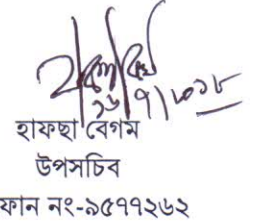 ১৬/৭/২০১৮
হাফছা বেগম
উপসচিব
ফোন নং-৯৫৭৭২৬২